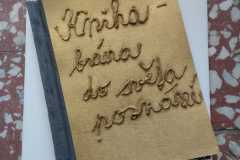 Kniha -
brána
do světa
poznání